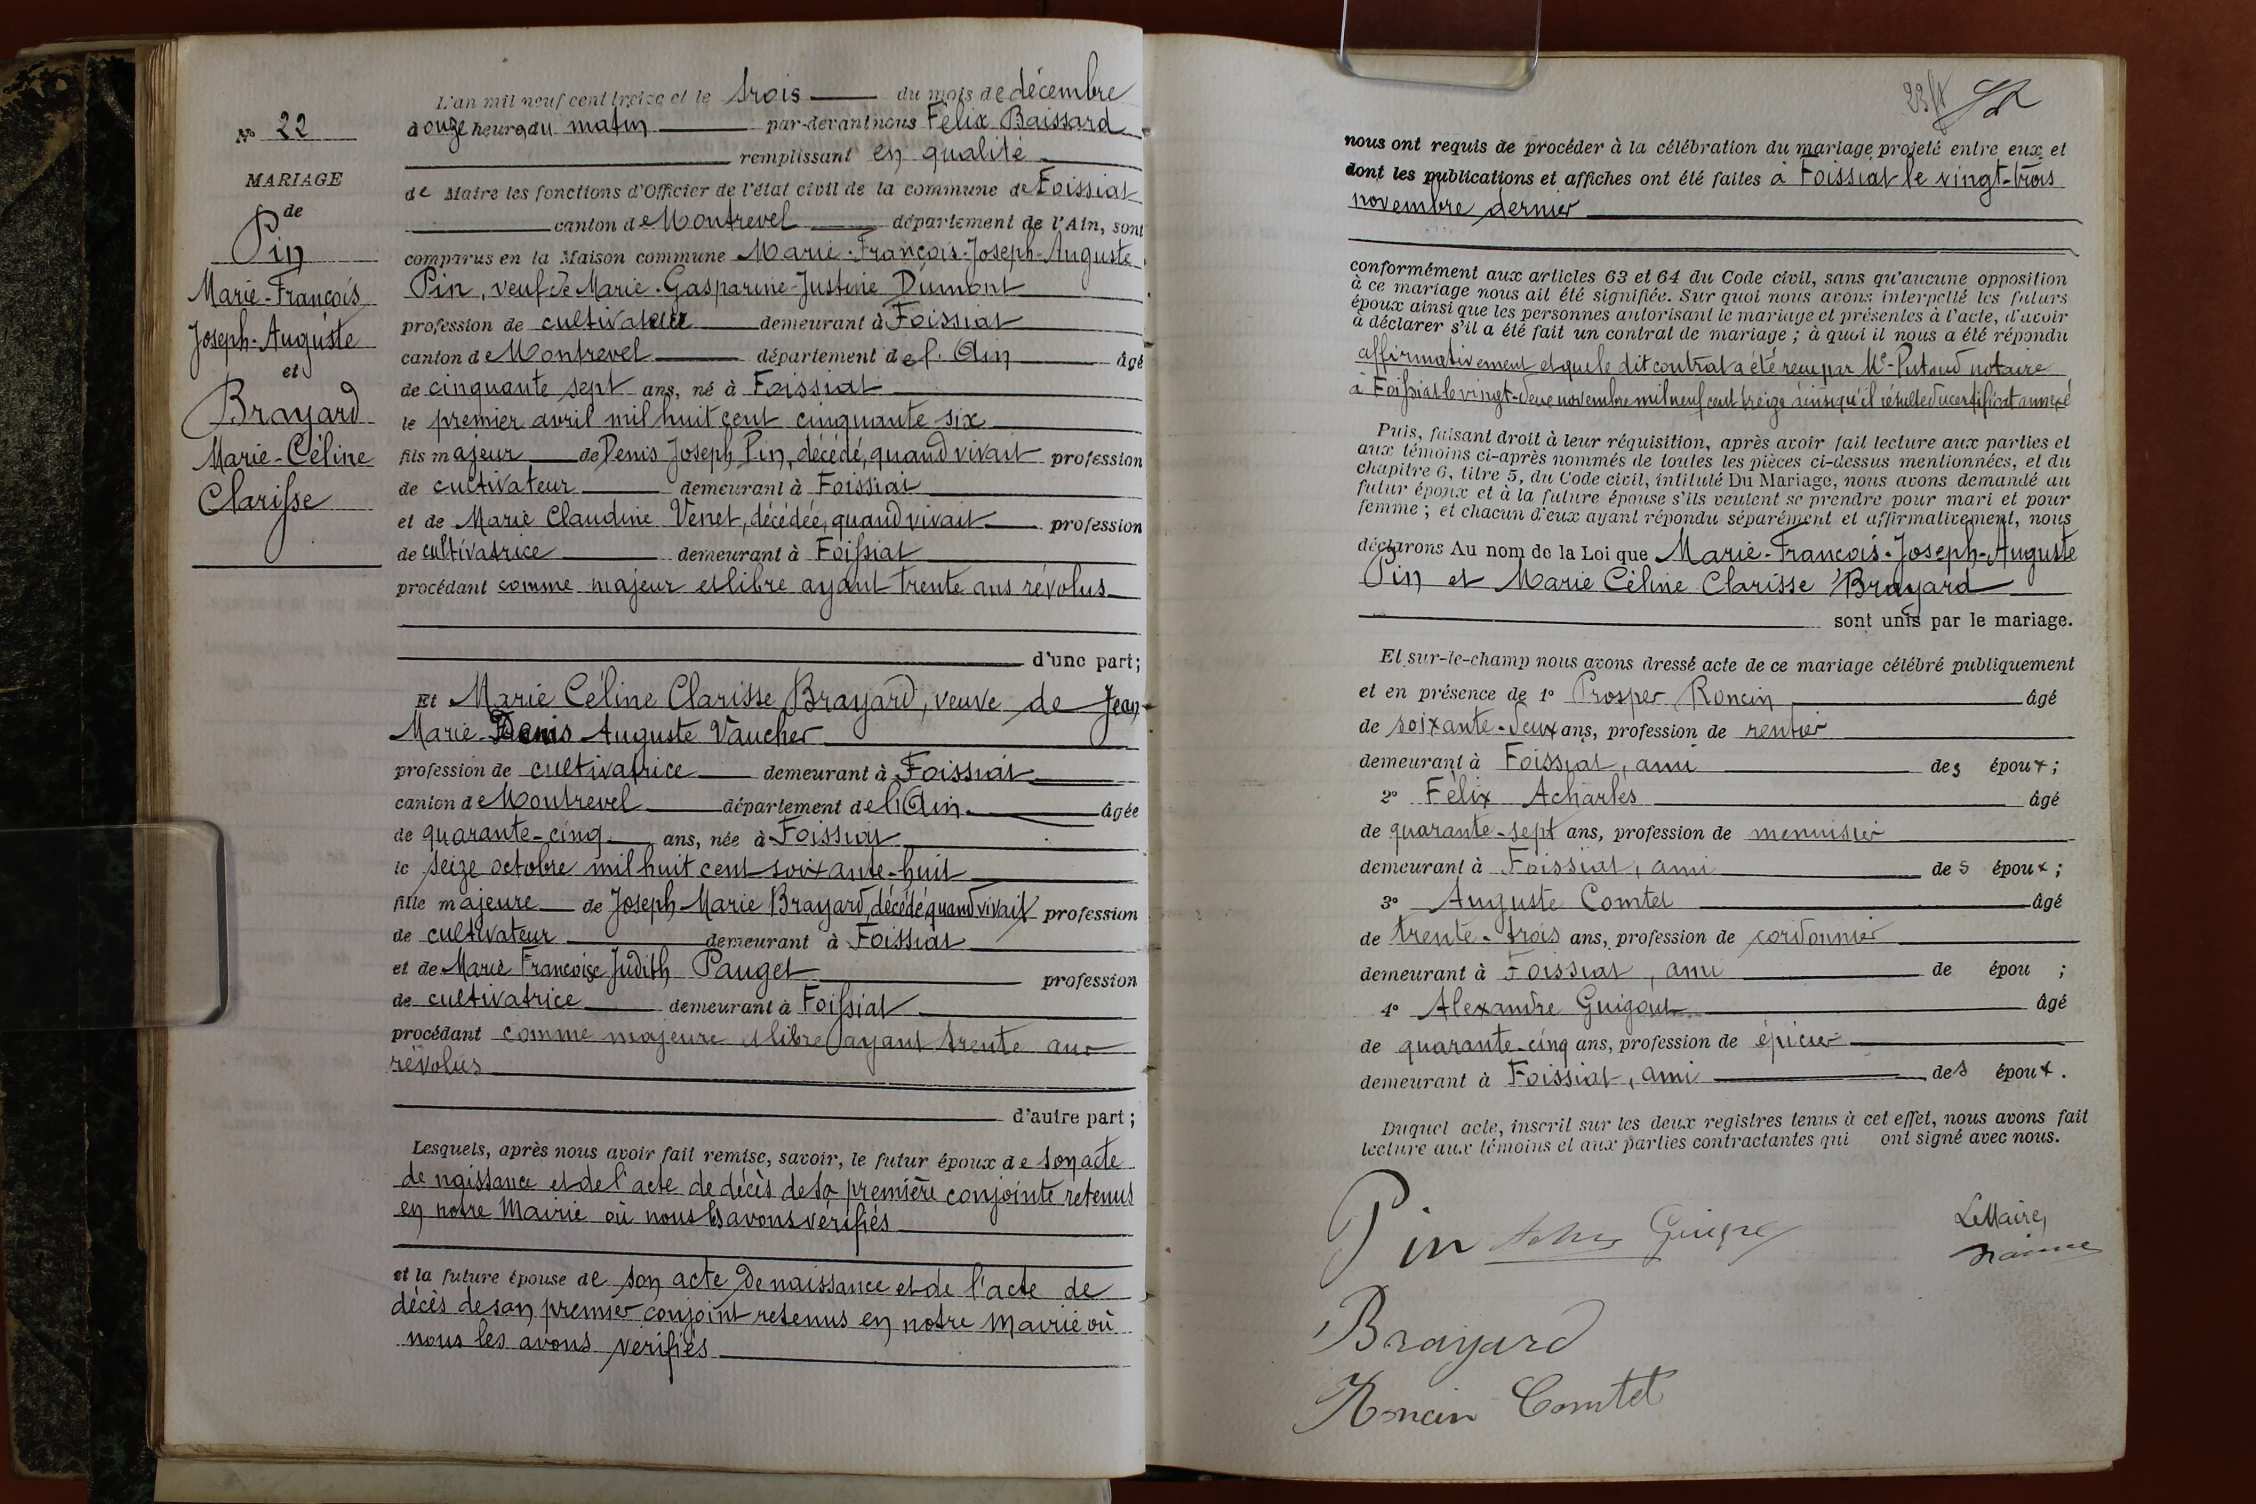 N° 22
MARIAGE
de
Pin
Marie-François
Joseph-Auguste
et
Brayard
Marie-Céline
Clarisse
L'an mil neuf cent treize et le trois du mois de décembre
à onze heures du matin par-devant nous Félix Baissard
remplissant en qualité
de Maire les fonctions d'Officier de l'état civil de la commune de Foissiat
canton de Montrevel département de l'Ain, sont
comparus en la Maison commune Marie-François-Joseph-Auguste
Pin, veuf de Marie-Gasparine-Justine Dumont
profession de cultivateur demeurant à Foissiat
canton de Montrevel département de l'Ain âgé
de cinquante sept ans, né à Foissiat
le premier avril mil huit cent cinquante six
fils majeur de Denis Joseph Pin, décédé, quand vivait profession
de cultivateur demeurant à Foissiat
et de Marie Claudine Venet, décédée, quand vivait profession
de cultivatrice demeurant à Foissiat
procédant comme majeur et libre ayant trente ans révolus
d'une part;
Et Marie Céline Clarisse Brayard, veuve de Jean
Marie Denis Auguste Vaucher
profession de cultivatrice demeurant à Foissiat
canton de Montrevel département de l'Ain âgée
de quarante-cinq ans, née à Foissiat
le seize octobre mil huit cent soixante-huit
fille majeure de Joseph-Marie Brayard, décédé, quand vivait profession
de cultivateur demeurant à Foissiat
et de Marie Françoise Judith Pauget profession
de cultivatrice demeurant à Foissiat
procédant comme majeure et libre ayant trente ans
révolus
d'autre part;
Lesquels, après nous avoir fait remise, savoir, le futur époux de son acte
de naissance et de l'acte de décès de sa première conjointe retenus
en notre Mairie où nous les avons vérifiés
et la future épouse de son acte de naissance et de l'acte de
décès de son premier conjoint retenus en notre Mairie où
nous les avons vérifiés
nous ont requis de procéder à la célébration du mariage projeté entre eux et
dont les publications et affiches ont été faites à Foissiat le vingt-trois
novembre dernier
conformément aux articles 63 et 64 du Code civil, sans qu'aucune opposition
à ce mariage nous ait été signifiée. Sur quoi nous avons interpellé les futurs
époux ainsi que les personnes autorisant le mariage et présentes à l'acte, d'avoir
à déclarer s'il a été fait un contrat de mariage; à quoi il nous a été répondu
affirmativement et que le dit contrat a été reçu par Me Putoud notaire
à Foissiat le vingt-deux novembre mil neuf cent treize ainsi qu'il résulte du certificat annexé
Puis, faisant droit à leur réquisition, après avoir fait lecture aux parties et
aux témoins ci-après nommés de toutes les pièces ci-dessus mentionnées, et du
chapitre 6, titre 5, du Code civil, intitulé Du Mariage, nous avons demandé au
futur époux et à la future épouse s'ils veulent se prendre pour mari et pour
femme; et chacun d'eux ayant répondu séparément et affirmativement, nous
déclarons Au nom de la Loi que Marie-François-Joseph-Auguste
Pin et Marie Céline Clarisse Brayard
sont unis par le mariage.
Et sur-le-champ nous avons dressé acte de ce mariage célébré publiquement
et en présence de 1° Prosper Roncin âgé
de soixante-deux ans, profession de rentier
demeurant à Foissiat, ami des époux;
2° Félix Acharles âgé
de quarante-sept ans, profession de menuisier
demeurant à Foissiat, ami des époux;
3° Auguste Comtet âgé
de trente-trois ans, profession de cordonnier
demeurant à Foissiat, ami de épou ;
4° Alexandre Guigout âgé
de quarante-cinq ans, profession de épicier
demeurant à Foissiat, ami des époux.
Duquel acte, inscrit sur les deux registres tenus à cet effet, nous avons fait
lecture aux témoins et aux parties contractantes qui ont signé avec nous.
Pin
Le Maire,
Brayard
Roncin Comtet